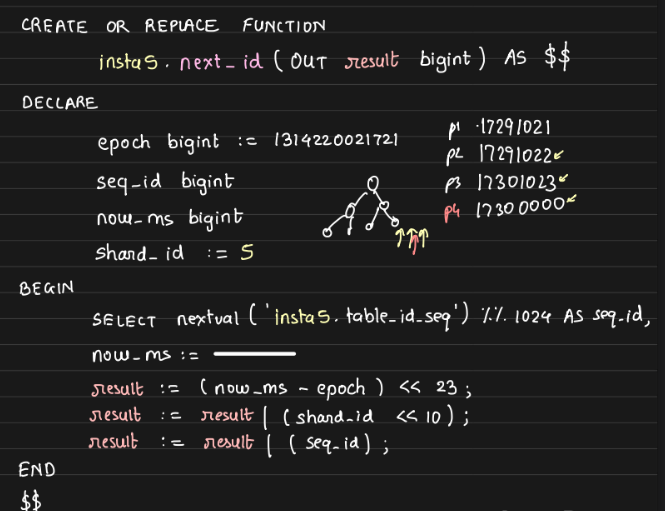 CREATE OR REPLACE FUNCTION
insta5.next_id (OUT result bigint) AS $$
DECLARE
epoch bigint := 1314220021721
seq-id bigint
now_ms bigint
shard_id := 5
p1 17291021
p2 17291022
p3 17301023
p4 17300000
BEGIN
SELECT nextval ('insta5.table_id_seq') %% 1024 AS seq_id,
now_ms :=
result := (now_ms - epoch) << 23;
result := result | (shard_id << 10);
result := result | (seq_id);
END
$$